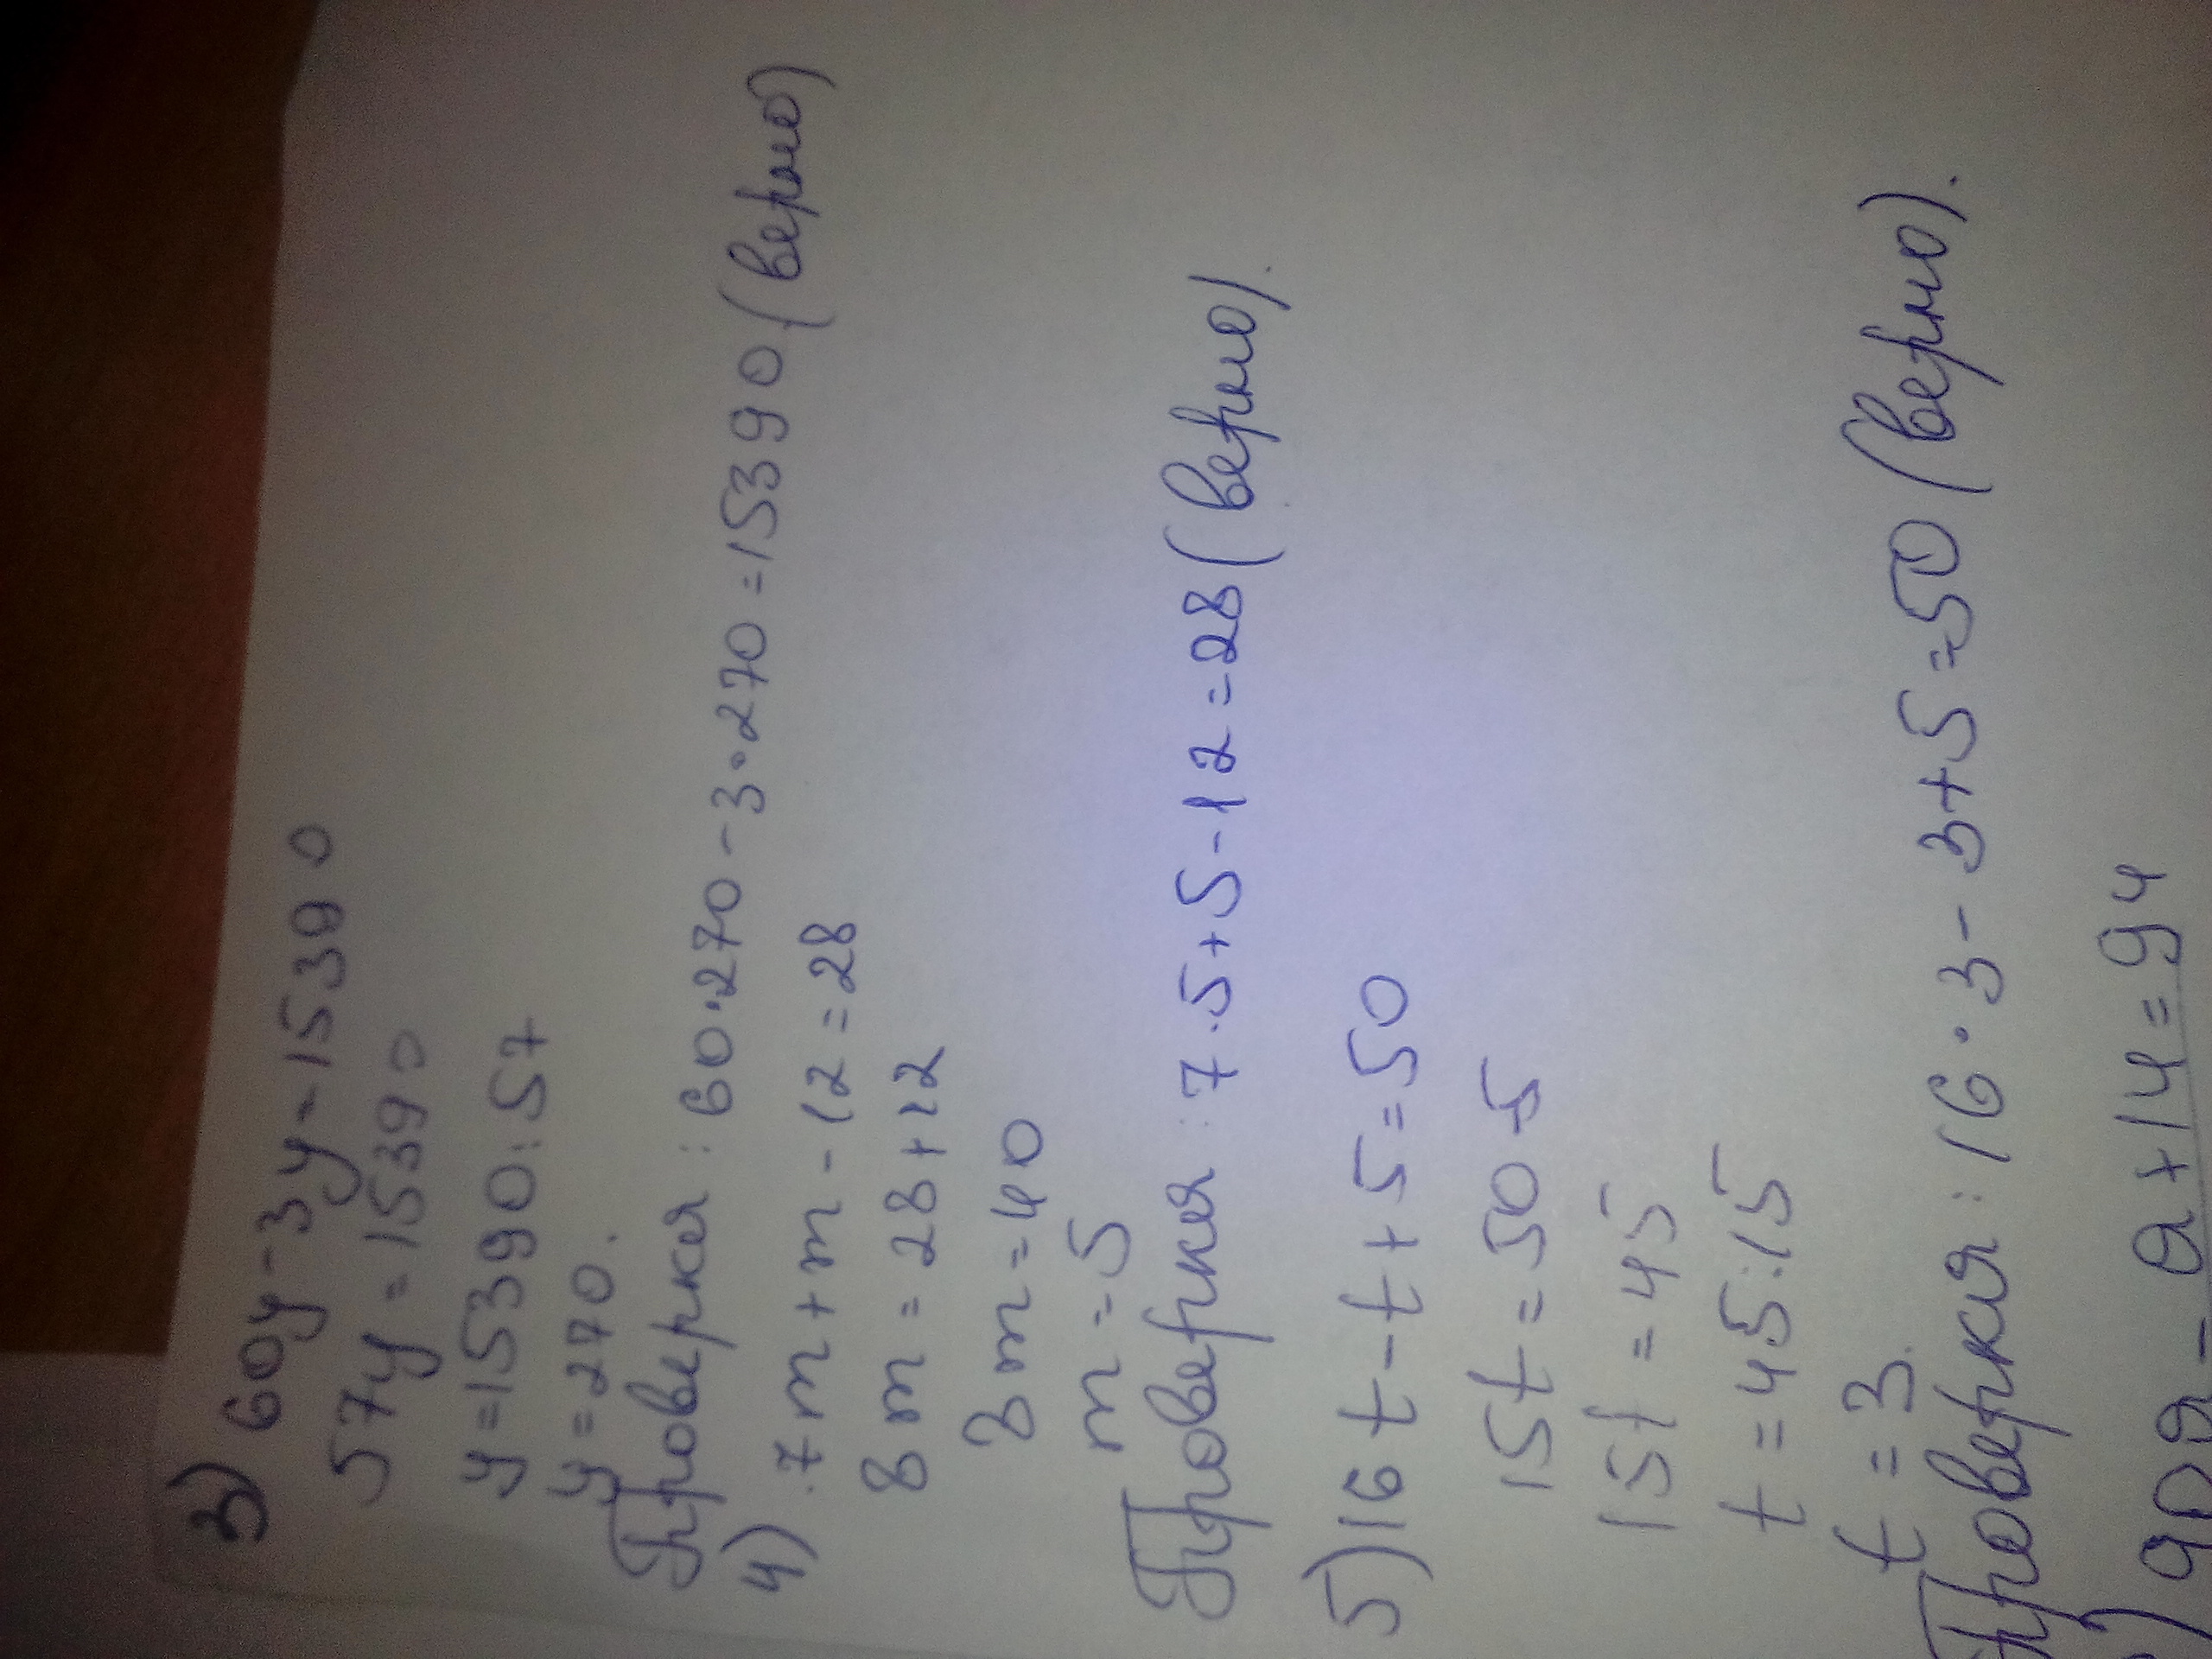 3) 60y-3y=15390
57y=15390
y=15390:57
y=270.
Проверка: 60·270-3·270=15390 (верно)
4) 7m+m-12=28
8m=28+12
8m=40
m=5
Проверка: 7·5+5-12=28 (верно).
5) 16t-t+5=50
15t=50-5
15t=45
t=45:15
t=3.
Проверка: 16·3-3+5=50 (верно).
) 90a-a+14=94